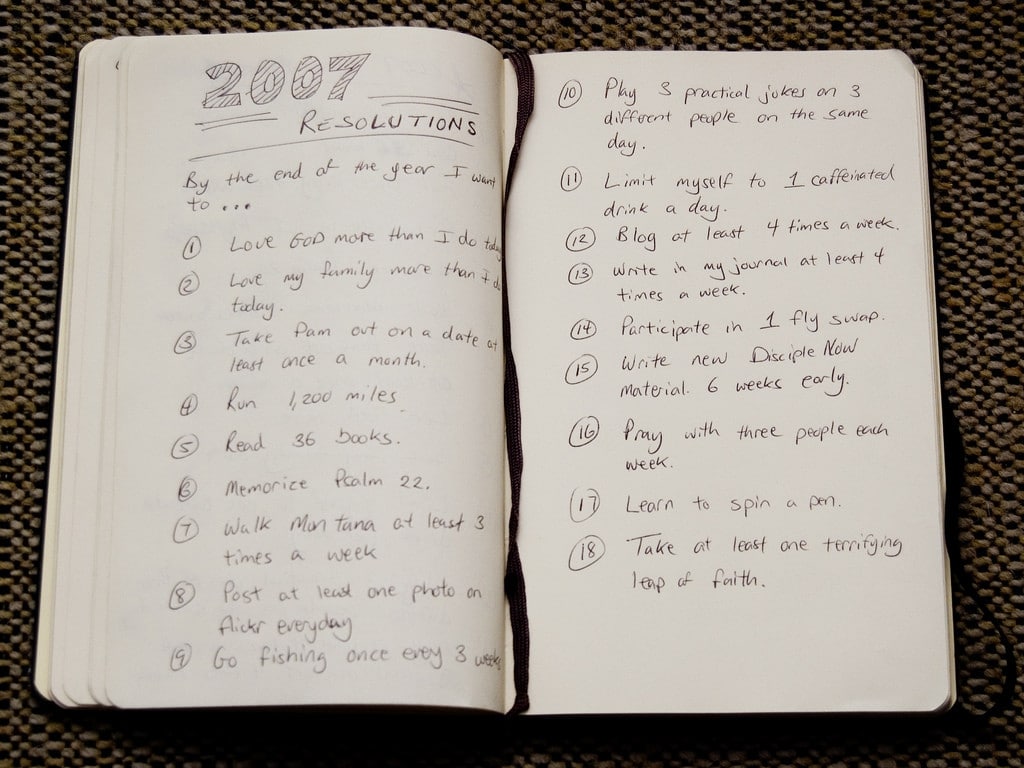 2007
RESOLUTIONS
By the end of the year I want
to ...
1 Love GOD more than I do today
2 Love my family more than I do
today.
3 Take Pam out on a date at
least once a month.
4 Run 1,200 miles.
5 Read 36 books.
6 Memorize Psalm 22.
7 Walk Montana at least 3
times a week
8 Post at least one photo on
flickr everyday
9 Go fishing once every 3 weeks
10 Play 3 practical jokes on 3
different people on the same
day.
11 Limit myself to 1 caffeinated
drink a day.
12 Blog at least 4 times a week.
13 Write in my journal at least 4
times a week.
14 Participate in 1 fly swap.
15 Write new Disciple Now
material. 6 weeks early.
16 Pray with three people each
week.
17 Learn to spin a pen.
18 Take at least one terrifying
leap of faith.